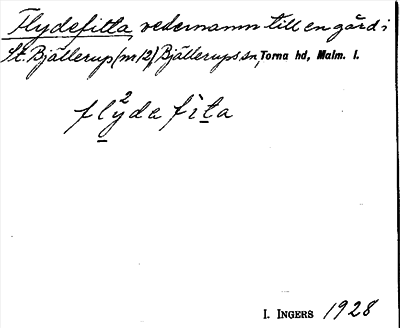 Flydefitta, vedernamn till en gård i
St. Bjällerup (nr 12) Bjällerups sn, Torna hd, Malm. l.
flýdefìta
I. INGERS 1928